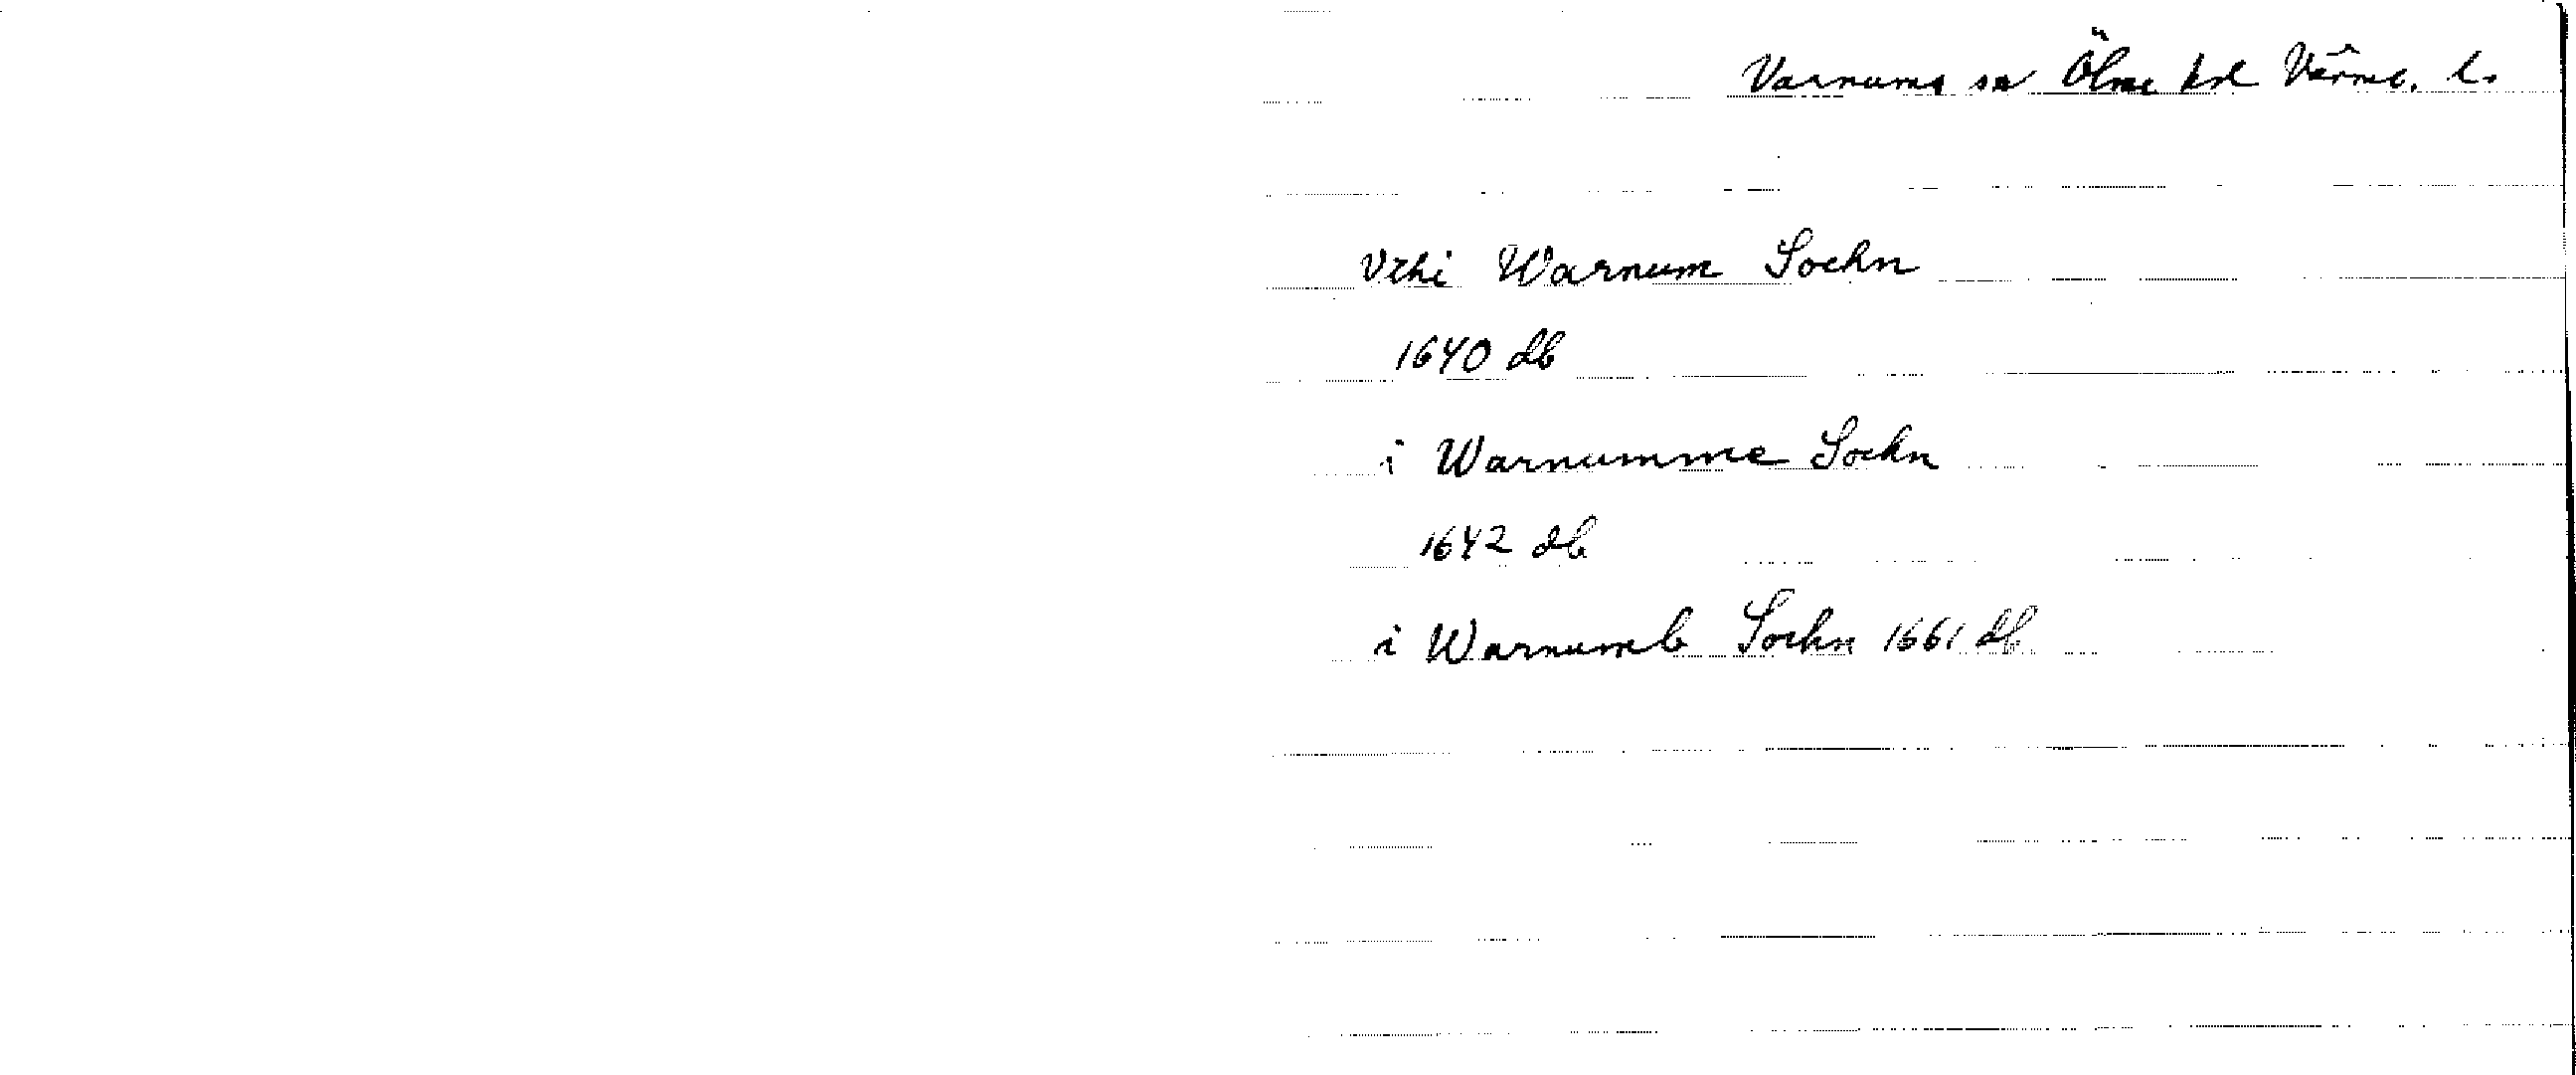 Varnums sn Ölme hd Värml. l.
Vthi Warnum Sochn
1640 db
i Warnumme Sochn
1642 db
i Warnumb Sochn 1661 db